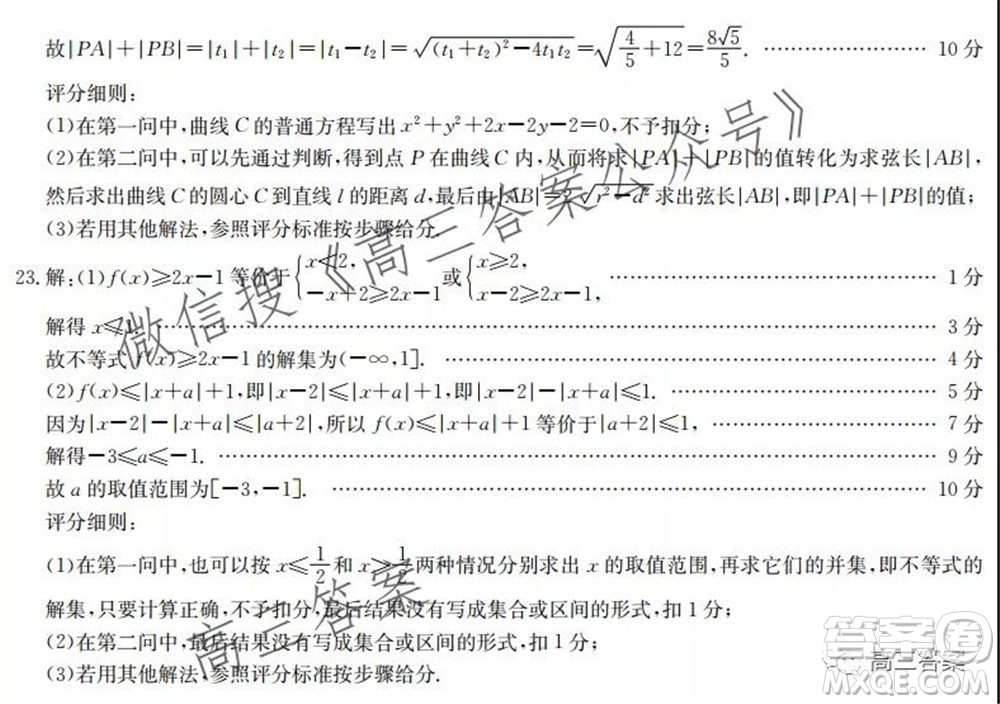 故|PA|+|PB|=|t₁|+|t₂|=|t₁-t₂|=√((t₁+t₂)²-4t₁t₂)=√(4/5+12)=8√5/5. …… 10 分
评分细则:
(1)在第一问中,曲线 C 的普通方程写出 x²+y²+2x-2y-2=0,不予扣分;
(2)在第二问中,可以先通过判断,得到点 P 在曲线 C 内,从而将求|PA|+|PB|的值转化为求弦长|AB|,
然后求出曲线 C 的圆心 C 到直线 l 的距离 d,最后由|AB|=2√(r²-d²)求出弦长|AB|,即|PA|+|PB|的值;
(3)若用其他解法,参照评分标准按步骤给分.
23. 解:(1)f(x)≥2x-1 等价于{x<2, -x+2≥2x-1 或{x≥2, x-2≥2x-1, …… 1 分
解得 x≤1. …… 3 分
故不等式 f(x)≥2x-1 的解集为(-∞,1]. …… 4 分
(2)f(x)≤|x+a|+1,即|x-2|≤|x+a|+1,即|x-2|-|x+a|≤1. …… 5 分
因为|x-2|-|x+a|≤|a+2|,所以 f(x)≤|x+a|+1 等价于|a+2|≤1, …… 7 分
解得-3≤a≤-1. …… 9 分
故 a 的取值范围为[-3,-1]. …… 10 分
评分细则:
(1)在第一问中,也可以按 x≤1/2 和 x>1/2 两种情况分别求出 x 的取值范围,再求它们的并集,即不等式的
解集,只要计算正确,不予扣分,最后结果没有写成集合或区间的形式,扣 1 分;
(2)在第二问中,最后结果没有写成集合或区间的形式,扣 1 分;
(3)若用其他解法,参照评分标准按步骤给分.
微信搜《高三答案公众号》
高三答案
答案圈
高三答案
MXQE.COM